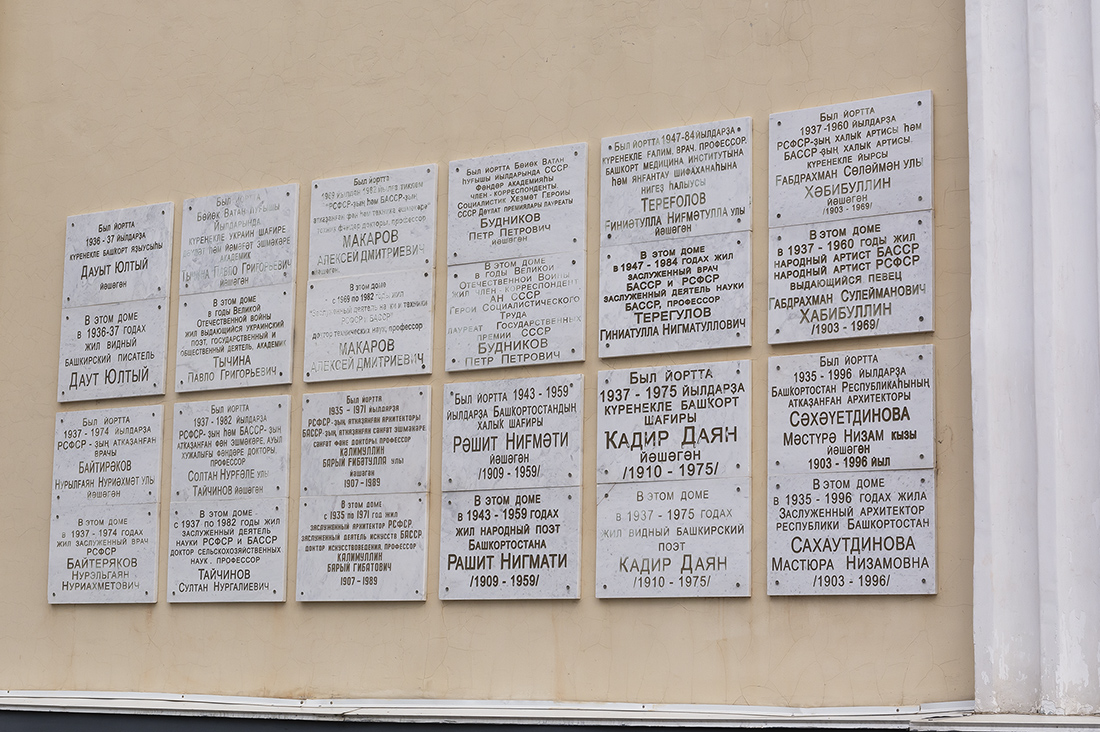 Был йортта
1936 - 37 йылдарҙа
күренекле башҡорт яҙыусыһы
Дауыт Юлтый
йәшәгән
В этом доме
в 1936-37 годах
жил видный
башкирский писатель
Даут Юлтый
Был йортта
Бөйөк Ватан һуғышы
йылдарында
күренекле украин шағире
дәүләт һәм йәмәғәт эшмәкәре
академик
Тычина Павло Григорьевич
йәшәгән
В этом доме
в годы Великой
Отечественной войны
жил выдающийся украинский
поэт, государственный и
общественный деятель, академик
Тычина
Павло Григорьевич
Был йортта
1969 йылдан 1982 йылға тиклем
РСФСР-ҙың һәм БАССР-ҙың
атказанған фән һәм техника эшмәкәре
техник фәнәр докторы, профессор
Макаров
Алексей Дмитриевич
йәшәгән
В этом доме
с 1969 по 1982 год жил
заслуженный деятель науки и техники
РСФСР и БАССР
доктор технических наук, профессор
Макаров
Алексей Дмитриевич
Был йортта Бөйөк Ватан
һуғышы йылдарында СССР
Фәндәр академияһы
член - корреспонденты,
Социалистик Хеҙмәт Геройы
СССР Дәүләт премиялары лауреаты
Будников
Петр Петрович
йәшәгән
В этом доме
в годы Великой
Отечественной Войны
жил член - корреспондент
АН СССР
Герой Социалистического
Труда
лауреат Государственных
премий СССР
Будников
Петр Петрович
Был йортта 1947-84 йылдарҙа
күренекле ғалим, врач, профессор,
Башкорт медицина институтына
һәм Янғантау шифаханаһына
нигеҙ һалыусы
Тереголов
Ғиниәтулла Ниғмәтулла улы
йәшәгән
В этом доме
в 1947 - 1984 годах жил
заслуженный врач
БАССР и РСФСР
заслуженный деятель науки
БАССР, профессор
Терегулов
Гиниатулла Нигматуллович
Был йортта
1937 -1960 йылдарҙа
РСФСР-ҙың халык артисы һәм
БАССР-ҙың халык артисы,
күренекле йырсы
Габдрахман Сөләймән улы
Хәбибуллин
йәшәгән
/1903 - 1969/
В этом доме
в 1937 - 1960 годы жил
народный артист БАССР
народный артист РСФСР
выдающийся певец
Габдрахман Сулейманович
Хабибуллин
/1903 - 1969/
Был йортта
1937 - 1974 йылдарҙа
РСФСР -ҙың атказанған
врачы
Байтирәков
Нурылғаян Нуриәхмәт улы
йәшәгән
В этом доме
в 1937 - 1974 годах
жил заслуженный врач
РСФСР
Байтеряков
Нурэльгаян
Нуриахметович
Был йортта
1937 - 1982 йылдарҙа
РСФСР-ҙың һәм БАССР-ҙың
атказанған фән эшмәкәре, ауыл
хужалығы фәндәре докторы,
профессор
Солтан Нурғәле улы
Тайчинов йәшәгән
В этом доме
с 1937 по 1982 годы жил
заслуженный деятель
науки РСФСР и БАССР
доктор сельскохозяйственных
наук , профессор
Тайчинов
Султан Нургалиевич
Был йортта
1935 - 1971 йылдарҙа
РСФСР-ҙың атказанған архитекторы
БАССР-ҙың атказанған сәнғәт эшмәкәре
сәнғәт фәне докторы, профессор
Калимуллин
Барый Гибәтулла улы
йәшәгән
1907-1989
В этом доме
с 1935 по 1971 год жил
заслуженный архитектор РСФСР,
заслуженный деятель искусств БАССР,
доктор искусствоведения, профессор
Калимуллин
Барый Гибатович
1907 - 1989
Был йортта 1943 - 1959
йылдарҙа Башкортостандың
халык шағиры
Рәшит Ниғмәти
йәшәгән
/1909 - 1959/
В этом доме
в 1943 - 1959 годах
жил народный поэт
Башкортостана
Рашит Нигмати
/1909 - 1959/
Был йортта
1937 - 1975 йылдарҙа
күренекле башкорт
шағиры
Кадир Даян
йәшәгән
/1910 - 1975/
В этом доме
в 1937 - 1975 годах
жил видный башкирский
поэт
Кадир Даян
/1910 - 1975/
Был йортта
1935 - 1996 йылдарҙа
Башкортостан Республикаһының
атказанған архитекторы
Сәхәүетдинова
Мәстүрә Низам кызы
йәшәгән
1903 - 1996 йыл
В этом доме
в 1935 - 1996 годах жила
Заслуженный архитектор
Республики Башкортостан
Сахаутдинова
Мастюра Низамовна
/1903 - 1996/